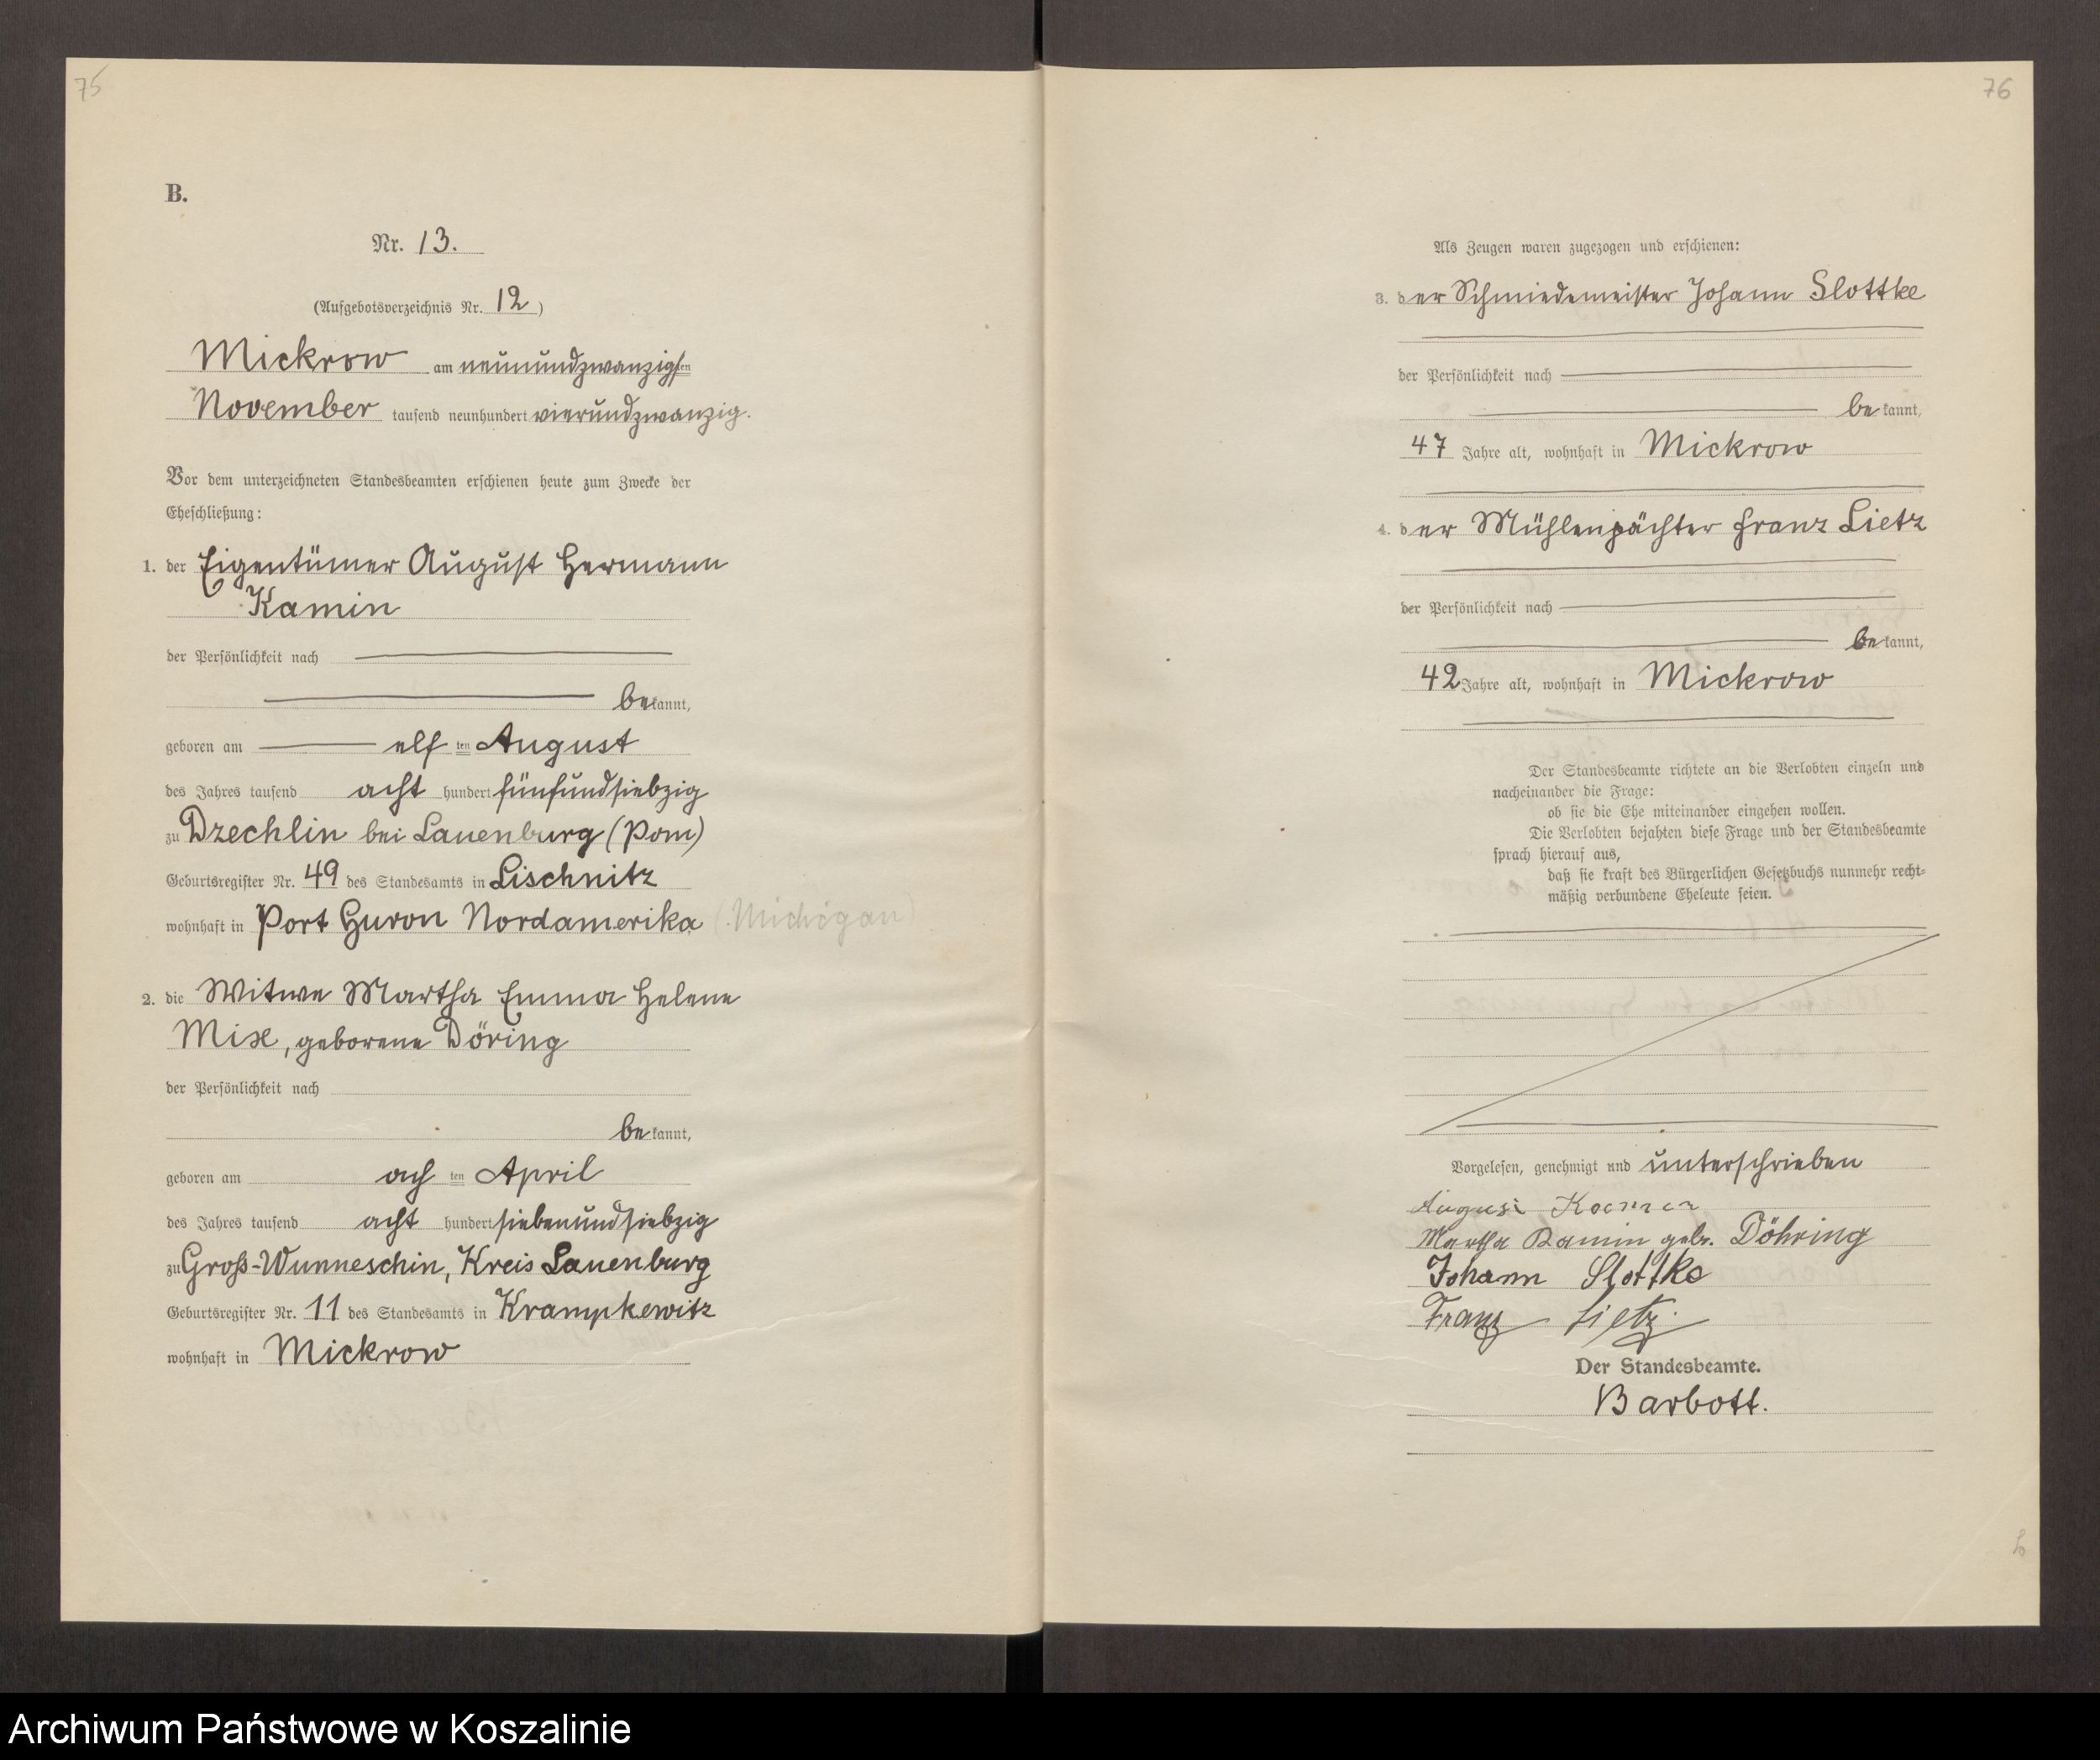 75
B.
Nr. 13.
(Aufgebotsverzeichnis Nr. 12)
Mickrow am neunundzwanzigsten
November tausend neunhundert vierundzwanzig.
Vor dem unterzeichneten Standesbeamten erschienen heute zum Zwecke der
Eheschließung:
1. der Eigentümer August Hermann
Kamin
der Persönlichkeit nach
bekannt,
geboren am elften August
des Jahres tausend acht hundert fünfundsiebzig
zu Drzechlin bei Lauenburg (Pom)
Geburtsregister Nr. 49 des Standesamts in Lischnitz
wohnhaft in Port Huron Nordamerika (Michigan)
2. die Witwe Martha Emma Helene
Mix, geborene Döring
der Persönlichkeit nach
bekannt,
geboren am achten April
des Jahres tausend acht hundert siebenundsiebzig
zu Groß-Wunneschin, Kreis Lauenburg
Geburtsregister Nr. 11 des Standesamts in Krampkewitz
wohnhaft in Mickrow
76
Als Zeugen waren zugezogen und erschienen:
3. der Schmiedemeister Johann Slottke
der Persönlichkeit nach
bekannt,
47 Jahre alt, wohnhaft in Mickrow
4. der Mühlenpächter Franz Lietz
der Persönlichkeit nach
bekannt,
42 Jahre alt, wohnhaft in Mickrow
Der Standesbeamte richtete an die Verlobten einzeln und
nacheinander die Frage:
ob sie die Ehe miteinander eingehen wollen.
Die Verlobten bejahten diese Frage und der Standesbeamte
sprach hierauf aus,
daß sie kraft des Bürgerlichen Gesetzbuchs nunmehr recht-
mäßig verbundene Eheleute seien.
Vorgelesen, genehmigt und unterschrieben
August
Martha Kamin geb. Döhring
Johann Slottke
Franz Lietz.
Der Standesbeamte.
Barbott.
Archiwum Państwowe w Koszalinie